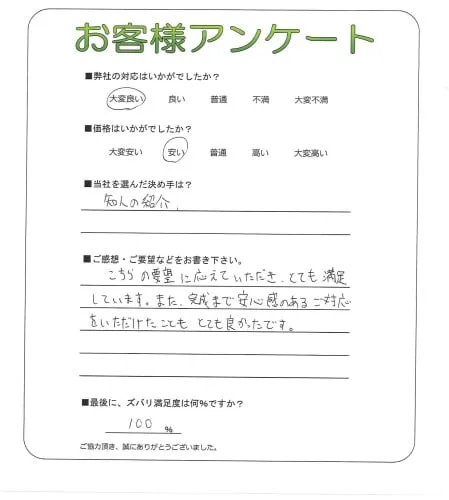 お客様アンケート
■弊社の対応はいかがでしたか?
大変良い 良い 普通 不満 大変不満
■価格はいかがでしたか?
大変安い 安い 普通 高い 大変高い
■当社を選んだ決め手は?
知人の紹介.
■ご感想・ご要望などをお書き下さい。
こちらの要望に応えていただき、とても満足
しています。また、完成まで安心感のあるご対応
をいただけたことも とても良かったです。
■最後に、ズバリ満足度は何%ですか?
100 %
ご協力頂き、誠にありがとうございました。